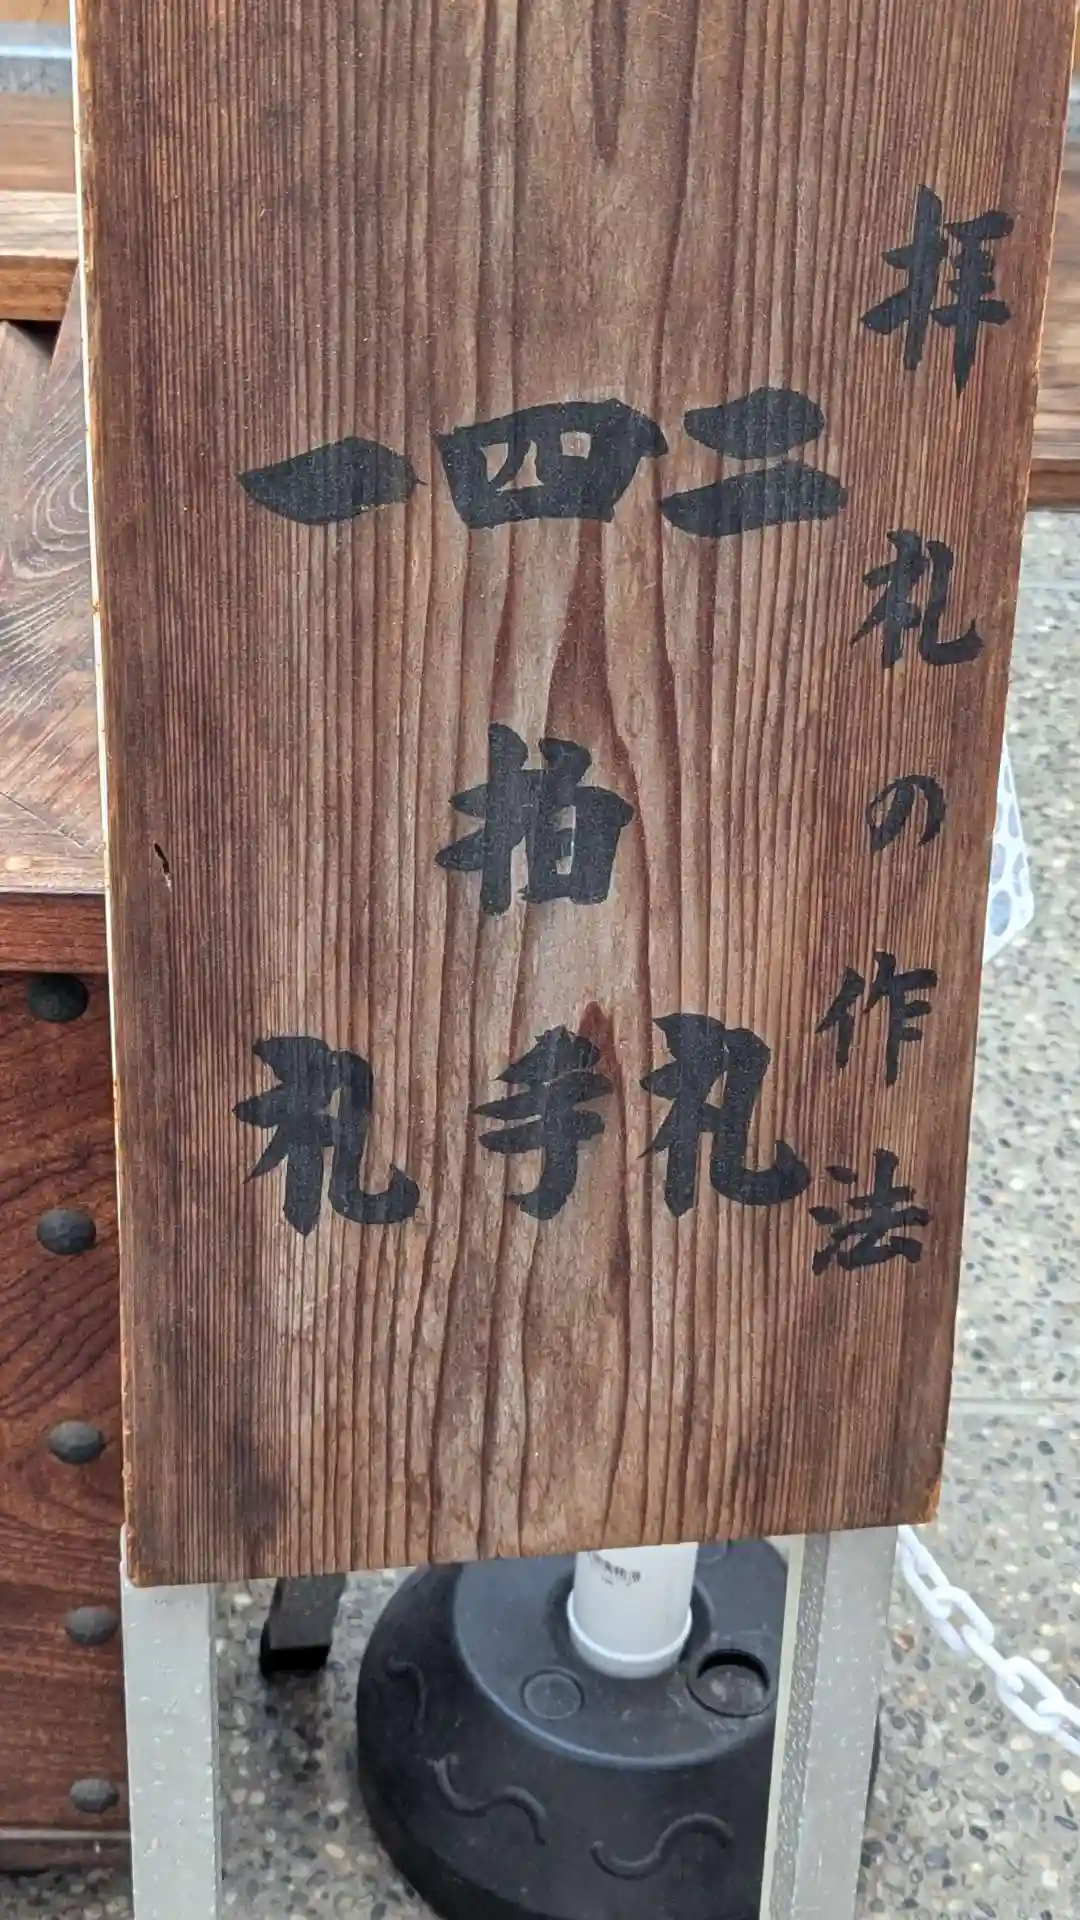 拝礼の作法
二礼
四拍手
一礼